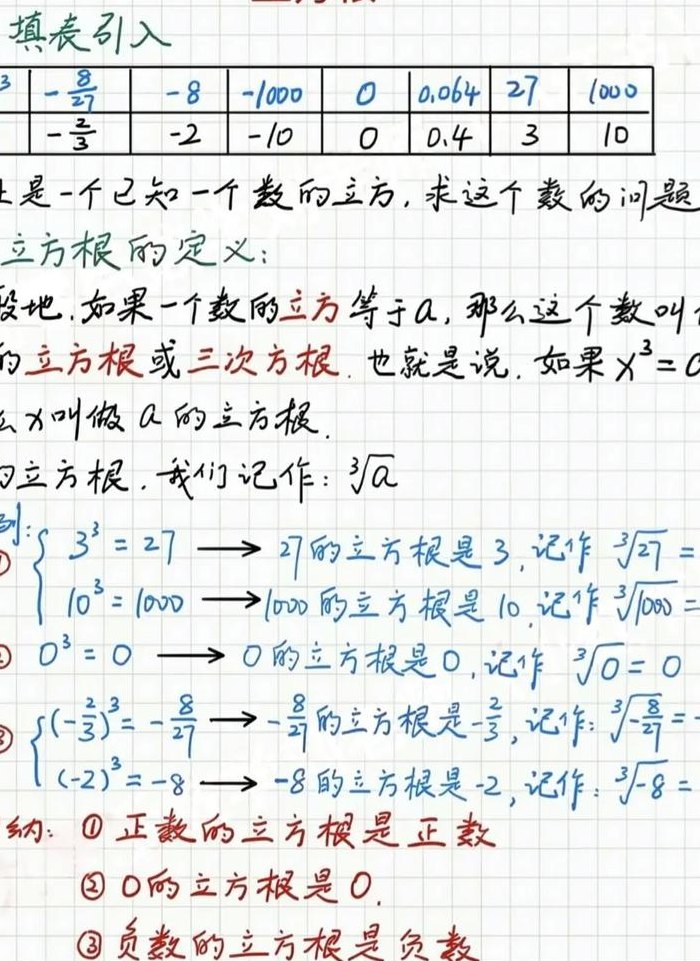 填表引入
3 -8/27 -8 -1000 0 0.064 27 1000
-2/3 -2 -10 0 0.4 3 10
是一个已知一个数的立方,求这个数的问题
立方根的定义:
般地,如果一个数的立方等于a,那么这个数叫
的立方根或三次方根.也就是说,如果x³=
么x叫做a的立方根.
的立方根,我们记作:∛a
例:
① 3³=27 → 27的立方根是3,记作 ∛27=
10³=1000 → 1000的立方根是10,记作 ∛1000=
② 0³=0 → 0的立方根是0,记作 ∛0=0
③ (-2/3)³=-8/27 → -8/27的立方根是-2/3,记作:∛-8/27=
(-2)³=-8 → -8的立方根是-2,记作:∛-8=
纳:① 正数的立方根是正数
② 0的立方根是0.
③ 负数的立方根是负数